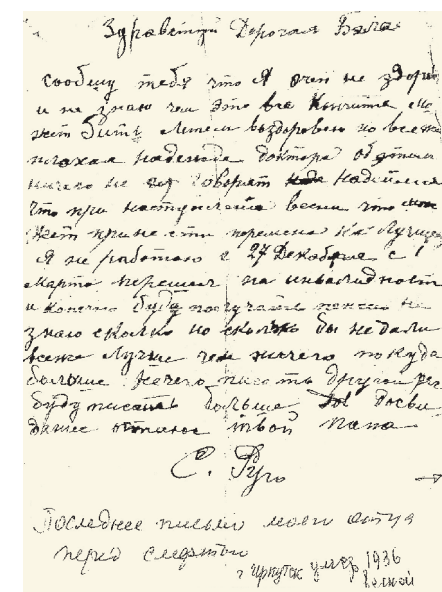 Здравствуй Дорогая Валя
сообщу тебя что Я очен не здоров
и не знаю чем это все кончится мо
жет быть летом выздоровею но все же
плохая надежда доктора об этом
ничего не говорят надеемся
что при наступлении весни что мо
жет принести перемена на лучшее
Я не работаю с 27 Декабря с 1
марта перешел на инвалидност
и конечно буду получать пенсию не
знаю сколко но сколько бы не дали
все же лучше чем ничего покуда
больше нечего писать другой раз
буду писать больше досви
дание твой папа
Последнее письмо моего отца
перед смертью
г Иркутск умер 1936
весной